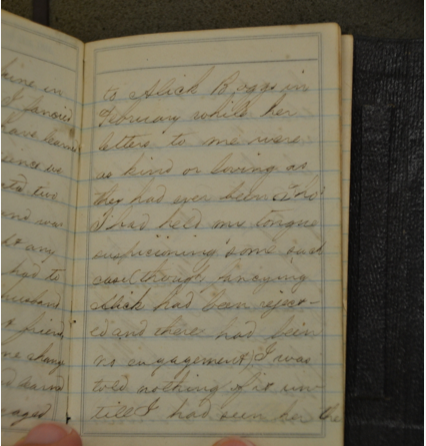 kine in
I fancied
have learn
ence we
ated two
and was
not any
had to
husband
& friend
me chang
d learn
gaged
to Alick Boggs in
February while her
letters to me were
as kind or loving as
they had ever been & tho'
I had held my tongue
suspicioning some such
case (though fancying
Alick had been reject-
ed and there had been
no engagement) I was
told nothing of it un-
till I had seen her the